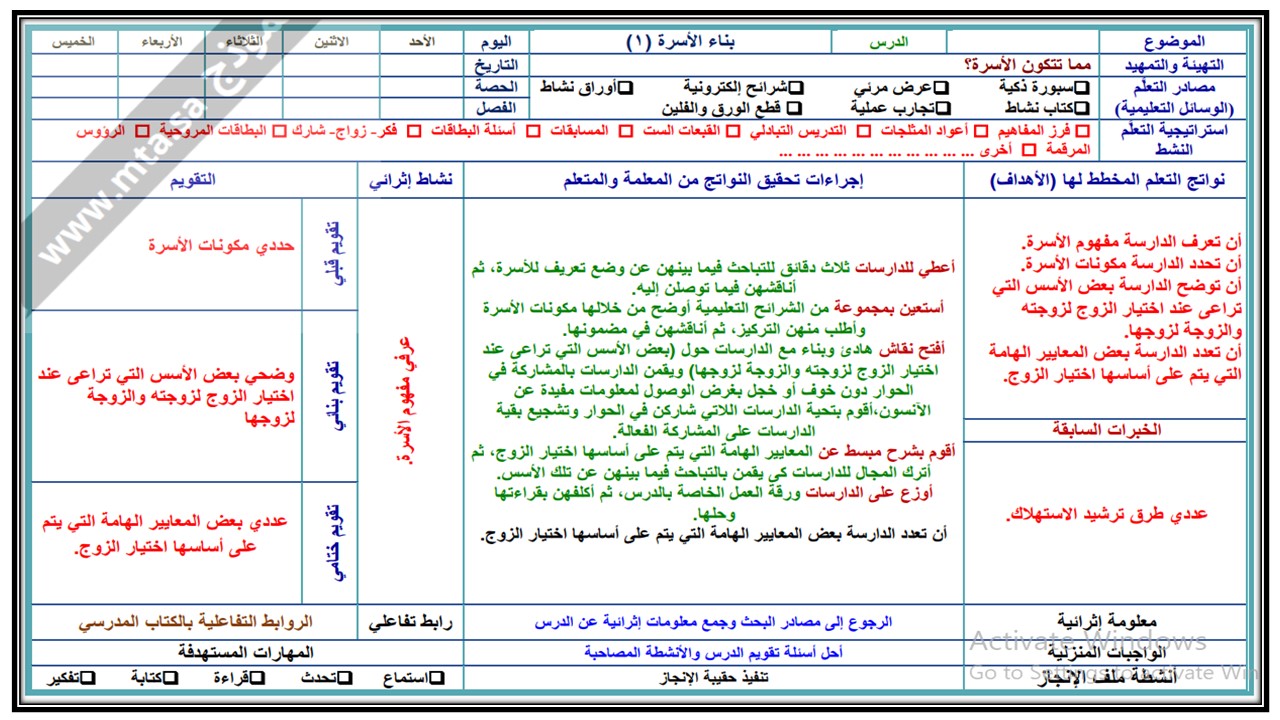 الموضوع
الدرس
بناء الأسرة (١)
اليوم
الأحد
الاثنين
الثلاثاء
الأربعاء
الخميس
التهيئة والتمهيد
مما تتكون الأسرة؟
التاريخ
مصادر التعلّم
(الوسائل التعليمية)
سبورة ذكية
عرض مرئي
شرائح إلكترونية
أوراق نشاط
الحصة
كتاب نشاط
تجارب عملية
قطع الورق والفلين
الفصل
استراتيجية التعلّم
النشط
فرز المفاهيم □ أعواد المثلجات □ التدريس التبادلي □ القبعات الست □ المسابقات □ أسئلة البطاقات □ فكر- زواج- شارك □ البطاقات المروحية □ الرؤوس
المرقمة □ أخرى ... ... ... ... ... ... ... ... ... ... ...
نواتج التعلم المخطط لها (الأهداف)
إجراءات تحقيق النواتج من المعلمة والمتعلم
نشاط إثرائي
التقويم
أن تعرف الدارسة مفهوم الأسرة.
أن تحدد الدارسة مكونات الأسرة.
أن توضح الدارسة بعض الأسس التي
تراعى عند اختيار الزوج لزوجته
والزوجة لزوجها.
أن تعدد الدارسة بعض المعايير الهامة
التي يتم على أساسها اختيار الزوج.
الخبرات السابقة
عددي طرق ترشيد الاستهلاك.
أعطي للدارسات ثلاث دقائق للتباحث فيما بينهن عن وضع تعريف للأسرة، ثم
أناقشهن فيما توصلن إليه.
أستعين بمجموعة من الشرائح التعليمية أوضح من خلالها مكونات الأسرة
وأطلب منهن التركيز، ثم أناقشهن في مضمونها.
أفتح نقاش هادئ وبناء مع الدارسات حول (بعض الأسس التي تراعى عند
اختيار الزوج لزوجته والزوجة لزوجها) ويقمن الدارسات بالمشاركة في
الحوار دون خوف أو خجل بغرض الوصول لمعلومات مفيدة عن
الآنسون،أقوم بتحية الدارسات اللاتي شاركن في الحوار وتشجيع بقية
الدارسات على المشاركة الفعالة.
أقوم بشرح مبسط عن المعايير الهامة التي يتم على أساسها اختيار الزوج، ثم
أترك المجال للدارسات كى يقمن بالتباحث فيما بينهن عن تلك الأسس.
أوزع على الدارسات ورقة العمل الخاصة بالدرس، ثم أكلفهن بقراءتها
وحلها.
أن تعدد الدارسة بعض المعايير الهامة التي يتم على أساسها اختيار الزوج.
عرفي مفهوم الأسرة.
تقويم قبلي
حددي مكونات الأسرة
تقويم بنائي
وضحي بعض الأسس التي تراعى عند
اختيار الزوج لزوجته والزوجة
لزوجها
تقويم ختامي
عددي بعض المعايير الهامة التي يتم
على أساسها اختيار الزوج.
معلومة إثرائية
الرجوع إلى مصادر البحث وجمع معلومات إثرائية عن الدرس
رابط تفاعلي
الروابط التفاعلية بالكتاب المدرسي
الواجبات المنزلية
أحل أسئلة تقويم الدرس والأنشطة المصاحبة
المهارات المستهدفة
أنشطة ملف الإنجاز
تنفيذ حقيبة الإنجاز
استماع
تحدث
قراءة
كتابة
تفكير
نموذج www.mta.sa
Activate Windows
Go to Settings to activate Win